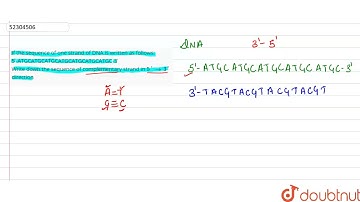 52304506
If the sequence of one strand of DNA is written as follows:
5'-ATGCATGCATGCATGCATGCATGCATGC-3'
Write down the sequence of complementary strand in 5' → 3'
direction
A=T
G≡C
DNA 3'-5'
5'-ATGCATGCATGCATGCATGC-3'
3'-TACGTACGTACGTACGT
doubtnut